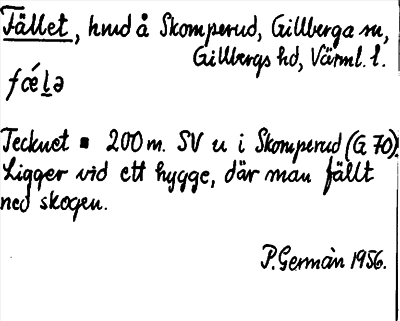 Fället, hmd å Skomperud, Gillberga sn,
Gillbergs hd, Värml. l.
fǽl̲ə
Tecknet ▪ 200 m. SV u i Skomperud (G 70).
Ligger vid ett hygge, där man fällt
ned skogen.
P. Germán 1956.